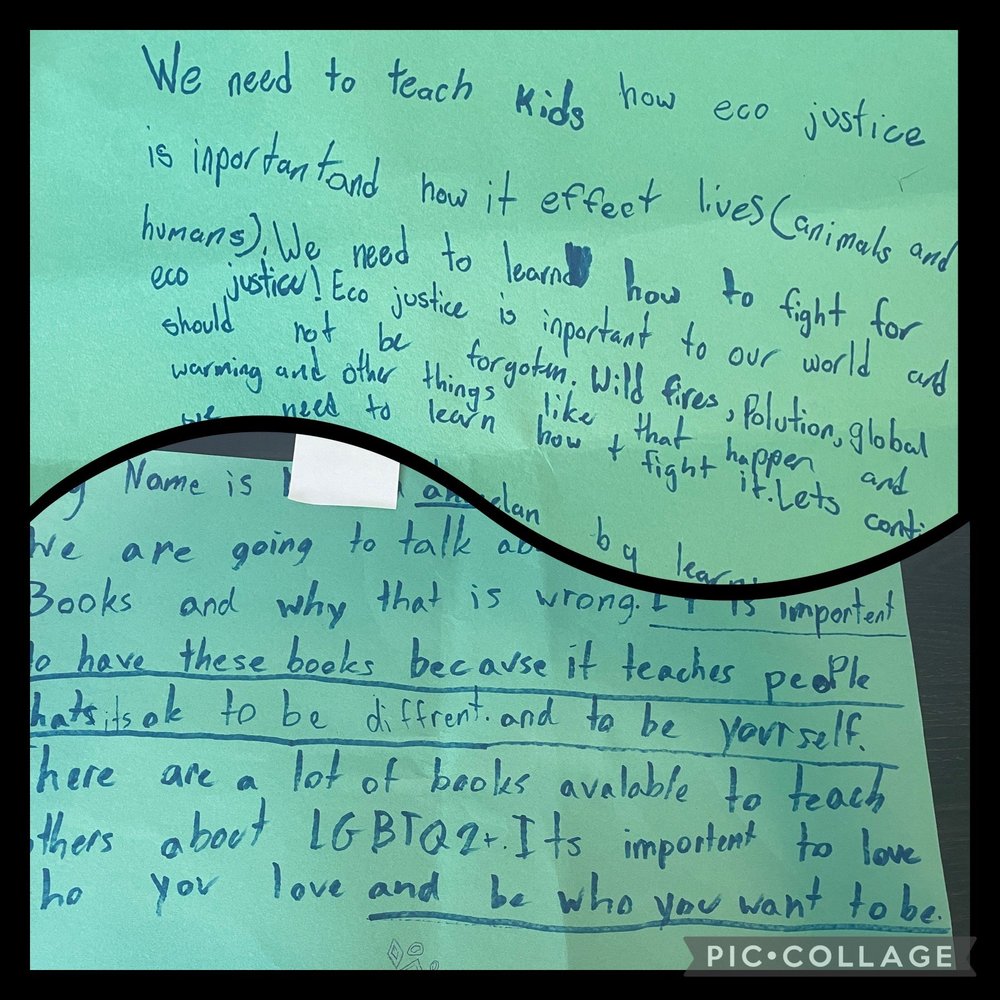 We need to teach kids how eco justice
is inportant and how it effect lives (animals and
humans). We need to learn how to fight for
eco justice! Eco justice is inportant to our world and
should not be forgoten. Wild fires, Polution, global
warming and other things like that happen and
we need to learn how t fight it. Lets conti
by learn
y Name is
We are going to talk ab
Books and why that is wrong. It is importent
o have these books because it teaches people
hats its ok to be diffrent. and to be yourself.
here are a lot of books avalable to teach
thers about LGBTQ2+. Its importent to love
ho you love and be who you want to be.
PIC•COLLAGE